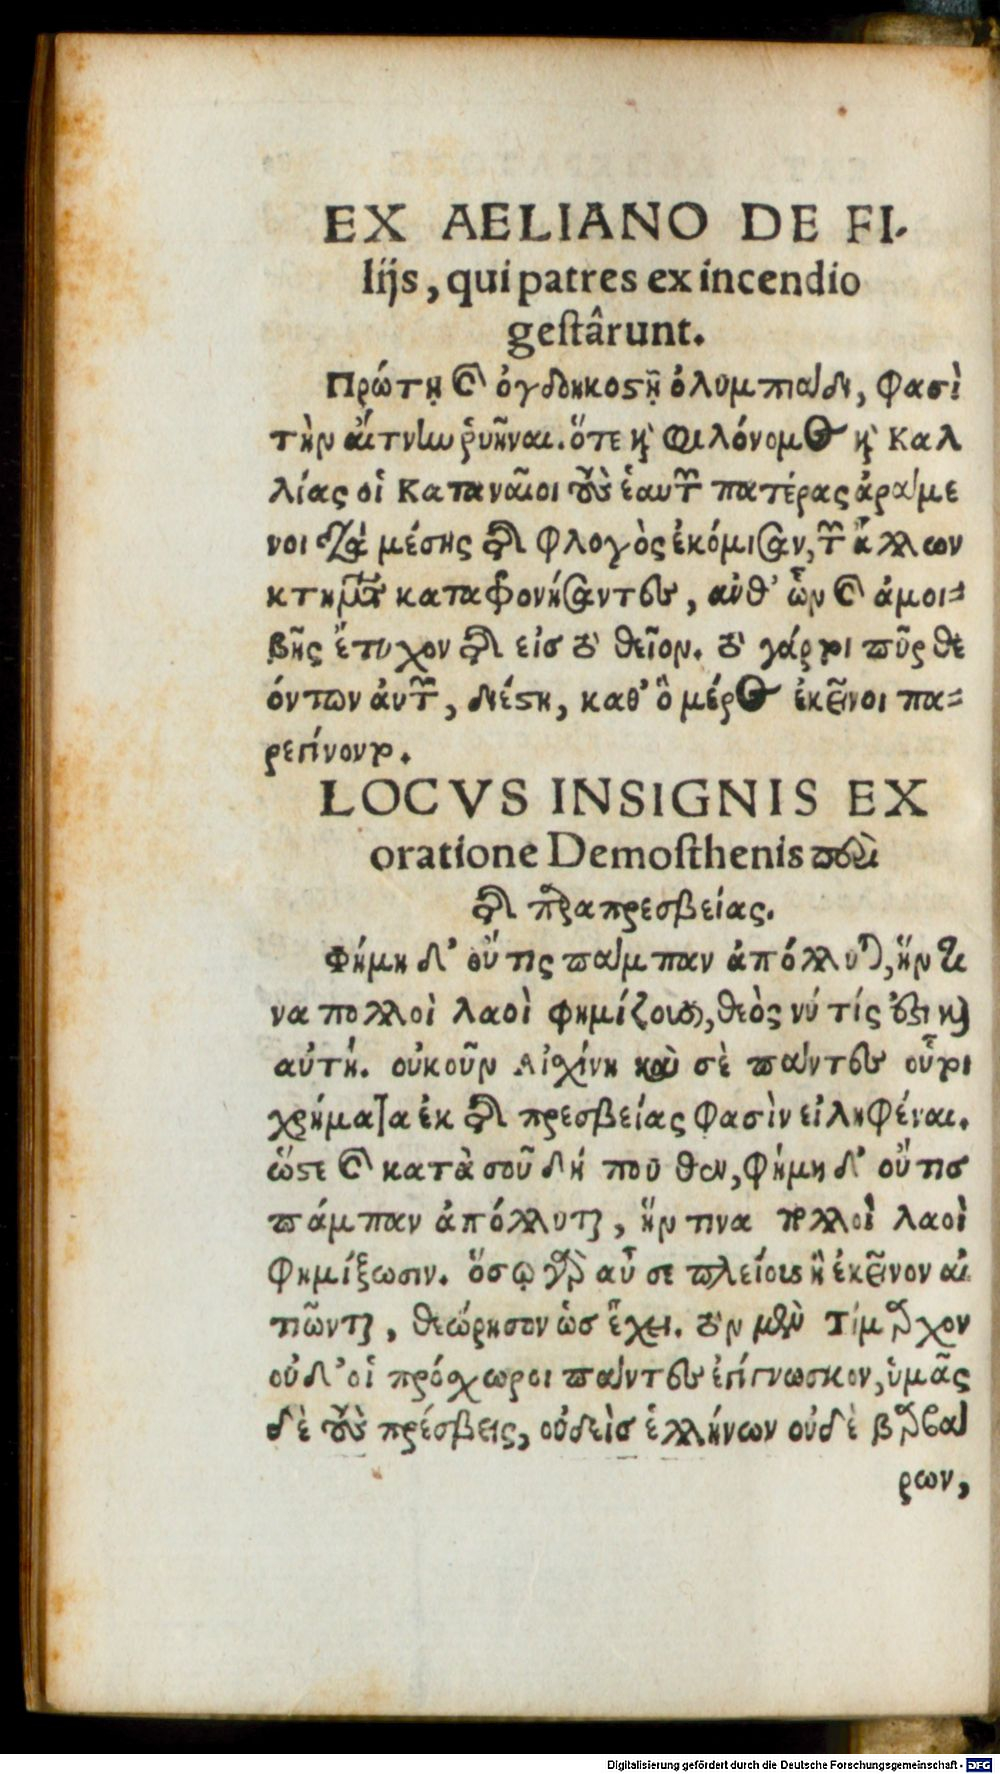 EX AELIANO DE FI-
lijs, qui patres ex incendio
gestârunt.
Πρώτῃ καὶ ὀγδοηκοστῇ ὀλυμπιάδι, φασὶ
τὴν αἴτνην ῥυῆναι. ὅτε καὶ Φιλόνομος καὶ Καλ
λίας οἱ Καταναῖοι τοὺς ἑαυτῶν πατέρας ἀράμε
νοι διὰ μέσης τῆς φλογὸς ἐκόμισαν, τῶν ἄλλων
κτημάτων καταφρονήσαντες, ἀνθ' ὧν καὶ ἀμοι-
βῆς ἔτυχον τῆς εἰς τὸ θεῖον. τὸ γάρ τοι πῦρ θε
όντων αὐτῶν, διέστη, καθ' ὃ μέρος ἐκεῖνοι πα-
ρεγίνοντο.
LOCVS INSIGNIS EX
oratione Demosthenis περὶ
τῆς παραπρεσβείας.
Φήμη δ' οὔ τις πάμπαν ἀπόλλυται, ἥν τι
να πολλοὶ λαοὶ φημίζουσι, θεὸς νύ τίς ἐστι καὶ
αὐτή. οὐκοῦν Αἰχίνη καὶ σὲ πάντες οὗτοι
χρήματα ἐκ τῆς πρεσβείας φασὶν εἰληφέναι.
ὥστε καὶ κατὰ σοῦ δή που θεν, φήμη δ' οὔ τις
πάμπαν ἀπόλλυται, ἥν τινα πολλοὶ λαοὶ
φημίξωσιν. ὅσῳ γὰρ αὖ σε πλείους ἢ ἐκεῖνον αἰ
τιῶνται, θεώρησον ὡς ἔχει. τὸν μὲν Τίμαρχον
οὐδ' οἱ πρόχωροι πάντες ἐγίγνωσκον, ὑμᾶς
δὲ τοὺς πρέσβεις, οὐδεὶς ἑλλήνων οὐδὲ βαρβά
ρων,
Digitalisierung gefördert durch die Deutsche Forschungsgemeinschaft - DFG